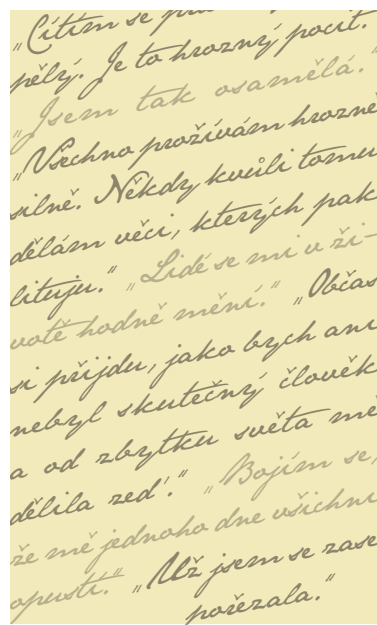 „Cítím se
pělý. Je to hrozný pocit."
„Jsem tak osamělá."
„Všechno prožívám hrozně
silně. Někdy kvůli tomu
dělám věci, kterých pak
lituju." „Lidé se mi v ži-
votě hodně mění." „Občas
si přijdu, jako bych ani
nebyl skutečný člověk
a od zbytku světa mě
dělila zeď." „Bojím se,
že mě jednoho dne všichni
opustí." „Už jsem se zase
pořezala."